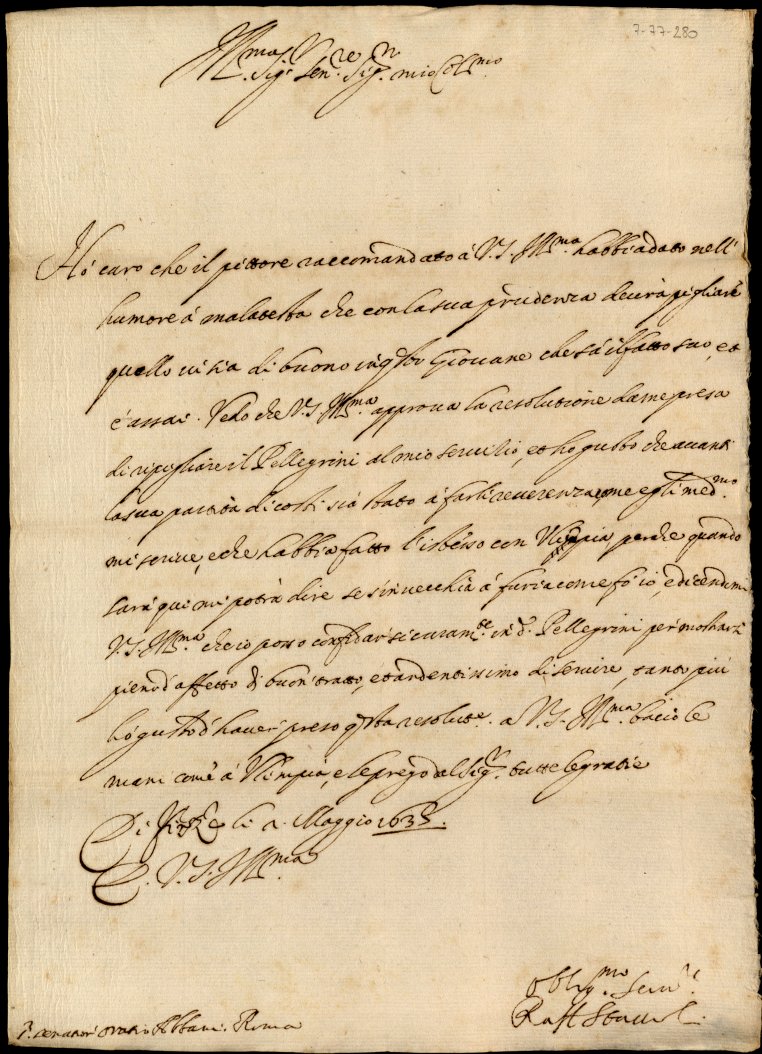 7-77-280
Ill.mo Sig.r Sen.re Sig.r mio Col.mo
Hò caro che il pittore raccomandato à V.S. Ill.ma habbia dato nell'
humore à malatesta che con la sua prudenza deverà pigliare
quello vi sia di buono in q.sto Giovane che sà il fatto suo, et
è assai. Vedo che V.S. Ill.ma approva la resolutione da me presa
di ripigliare il Pellegrini al mio servitio, et hò gusto che avanti
la sua partita di costì sia stato à farli reverenza come egli med.mo
mi scrive, e che habbia fatto l'istesso con Olimpia, perche quando
sarà qui mi potrà dire se s'invecchia à furia come fò io, e dicendomi
V.S. Ill.ma che io posso confidar sicuram.te in d.o Pellegrini per mostrarsi
pieno d'affetto di buon tratto, et ardentissimo di servire, tanto più
hò gusto d'haver preso q.sta resolut.e a V.S. Ill.ma bacio le
mani come à Olimpia, e le prego dal Sig.r tutte le gratie
Di li 2. Maggio 1635.
D. V.S. Ill.ma
Obblig.mo Ser.
Raff.
S. senator Oratio Albani. Roma